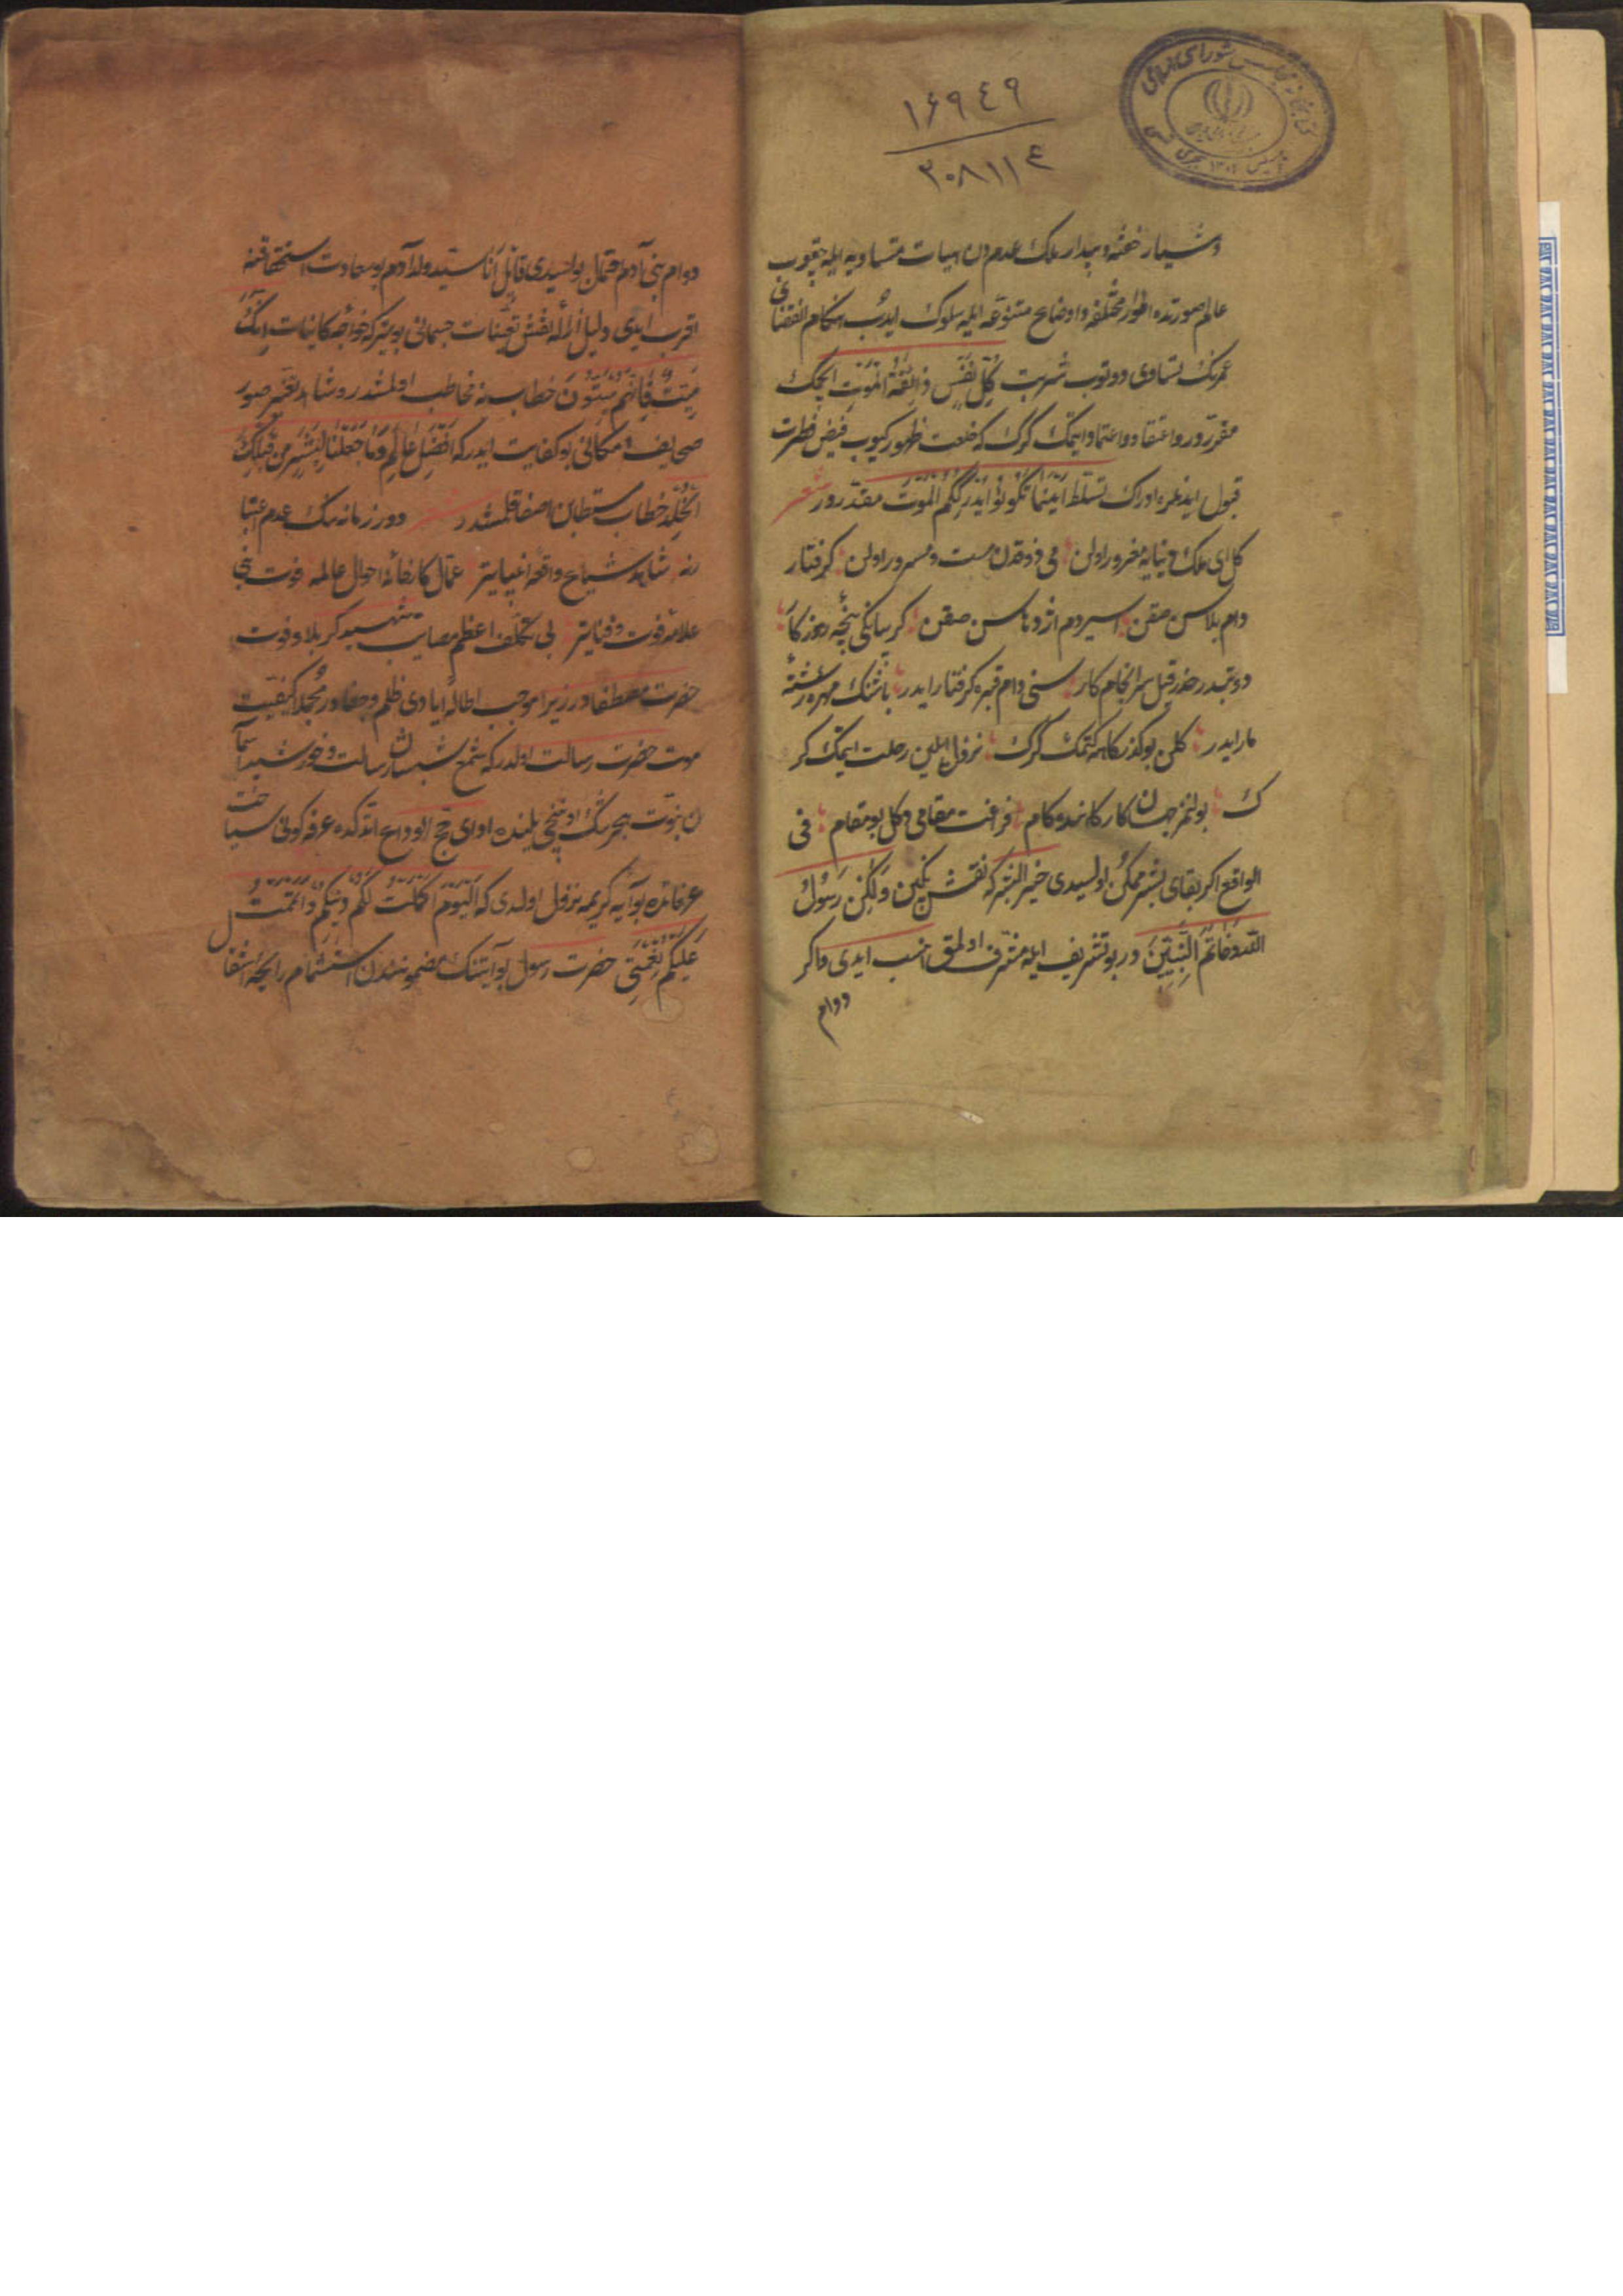 ۱۶۹۴۹
۳۰۸۱۱۴
کتابخانه مجلس شورای اسلامی
وشیار خفته وبیدار ملک عدم دن هیات متساویه ایله چیقوب
عالم صورتده اطوار مختلفه واوضاع متنوعه ایله سلوک ایدب هنکام انقضای
عمرنک تساوی دوتوب شربت کل نفس ذائقة الموت ایچمک
مقرّردور واعتقاد واعتماد ایتمک کرک که خلعت ظهور کیوب فیض فطرت
قبول ایدنلره ادراک تسلط اینما تکونوا یدرککم الموت مقدّردور شعر
کل ای ملک دنیایه مغرور اولن می ذوقدن مست ومسرور اولن کرفتار
دام بلاسن صقن اسیر دم اژدهاسن صقن کریبانکی پنجهٔ روزکار
دوتبدر حذر قیل سرانجام کار سنی دام قبره کرفتار ایدر باشنک مهره رشتهٔ
مار ایدر کلن بو کذرکاهه کتمک کرک نزول ایلین رحلت ایتمک کر
ک بولنمز جهان کارکاهنده کام فراغت مقامی دکل بو مقام فی
الواقع اکر بقای بشر ممکن اولسیدی خیر البشر که نقش نکین ولکن رسول
الله وخاتم النبیین در بو تشریف ایله مشرف اولمق انسب ایدی واکر
دوام
دوام بنی آدم احتمال بولسیدی قائل انا سید ولد آدم بو سعادت استحقاقنه
اقرب ایدی دلیل ازالهٔ نقش تعینات جسمانی بو یتر که خواجهٔ کاینات انک
میت وانهم میتون خطابنه مخاطب اولمشدر وشاهد تغیر صور
صحایف امکانی بو کفایت ایدر که افضل عالم وما جعلنا لبشر من قبلک
الخلد خطابن اصغا قلمشدر شعر دور زمانه نک عدم اعتبا
رنه شاهد شیاع واقعهٔ انبیا یتر عمال کارخانهٔ احوال عالمه فوت نبی
علامت فوت وفنا یتر بی تکلف اعظم مصایب شهید کربلا وفوت
حضرت مصطفادر زیرا موجب اطالهٔ ایادی ظلم وجفادر مجملا کیفیت
موت حضرت رسالت اولدر که شمع شبستان رسالت وخورشید آسما
ن نبوت هجرتنک اونجی یلنده ادای حج الوداع اتدکده عرفه کونی سیاحت
عرفاتده بو آیه کریمه نزول اولدی که الیوم اکملت لکم دینکم واتممت
علیکم نعمتی حضرت رسول بو آیتنک مضمونندن استشمام رایحهٔ انتقا
ل